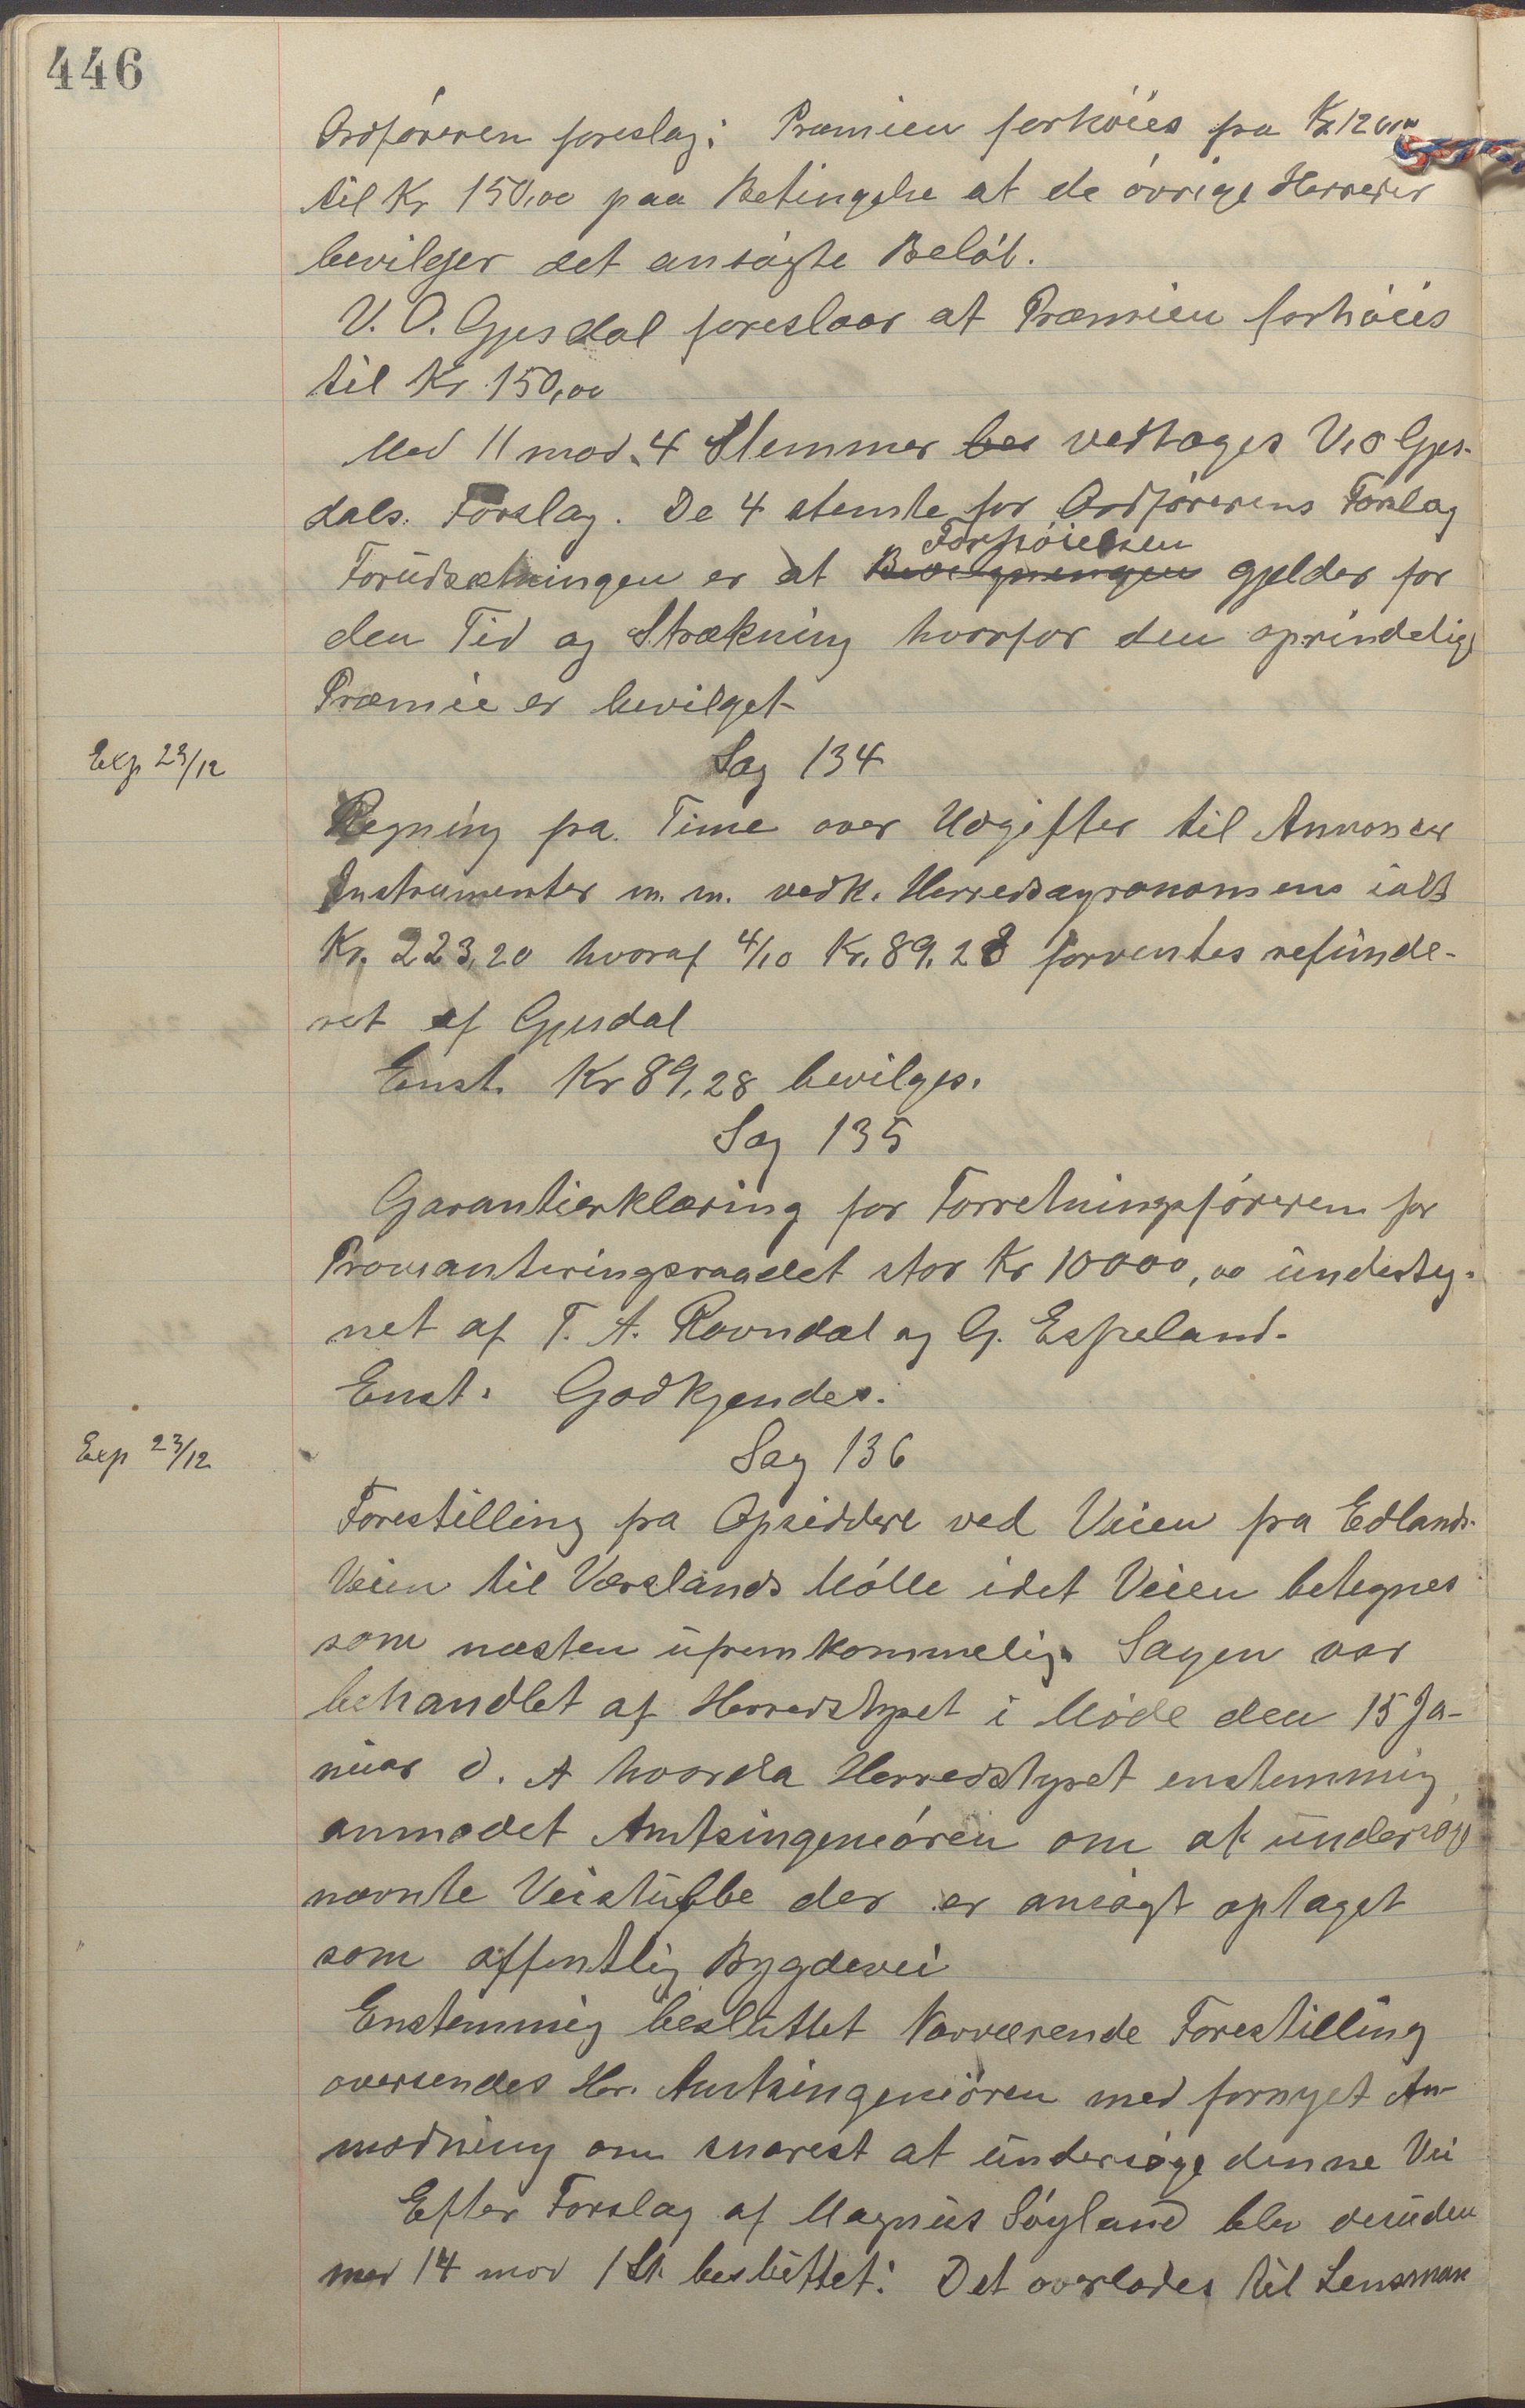 446
Ordføreren foreslog: Præmien forhøies fra Kr 120,00
til Kr 150,00 paa Betingelse at de øvrige Herreder
bevilger det ansøgte Beløb.
V. O. Gjesdal foreslaar at Præmien forhøies
til Kr. 150,00
Med 11 mod 4 Stemmer bes vedtages V. O Gjes-
dals. Forslag. De 4 stemte for Ordførerens Forslag
Forhøielsen
Forudsætningen er at Bevilgningen gjelder for
den Tid og Strækning hvorfor den oprindelige
Præmie er bevilget
Exp 23/12
Sag 134
Regning fra Time over Udgifter til Annoncer
Instrumenter m. m. vedk. Herredsagronomens ialt
Kr. 223,20 hvoraf 4/10 Kr. 89.28 forventes refunde-
ret af Gjesdal
Enst. Kr 89,28 bevilges.
Sag 135
Garantierklæring for Forretningsføreren for
Provianteringsraadet stor Kr 10000,00 underteg-
net af T. A. Ravndal og G. Espeland.
Enst. Godkjendes.
Exp 23/12
Sag 136
Forestilling fra Opsiddere ved Veien fra Edlands-
Veien til Værslands Mølle idet Veien betegnes
som næsten ufremkommelig. Sagen var
behandlet af Herredstyret i Møde den 15 Ja-
nuar d. A hvorda Herredstyret enstemmig
anmodet Amtsingeniøren om at undersøge
nævnte Veistubbe der er ansøgt optaget
som offentlig Bygdevei
Enstemmig besluttet Nærværende Forestilling
oversendes Hr. Amtsingeniøren med fornyet An-
modning om snarest at undersøge denne Vei
Efter Forslag af Magnus Søyland blev desuden
med 14 mod 1 St. besluttet: Det overlades til Lensman